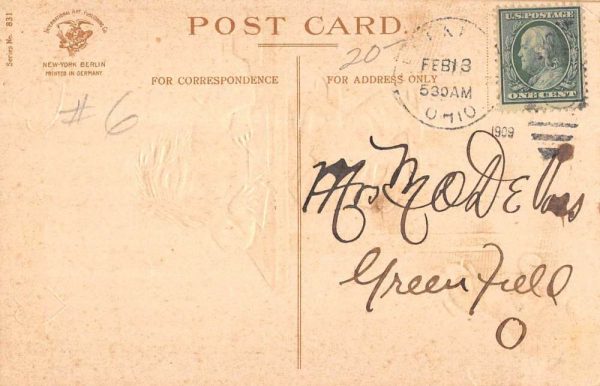 Series No. 831
International Art Publishing Co.
NEW-YORK BERLIN
PRINTED IN GERMANY
POST CARD.
FOR CORRESPONDENCE
FOR ADDRESS ONLY
# 6
20-
FEB 13
530AM
OHIO
1909
U.S. POSTAGE
ONE CENT
Mrs M O DE Voss
Greenfield
O